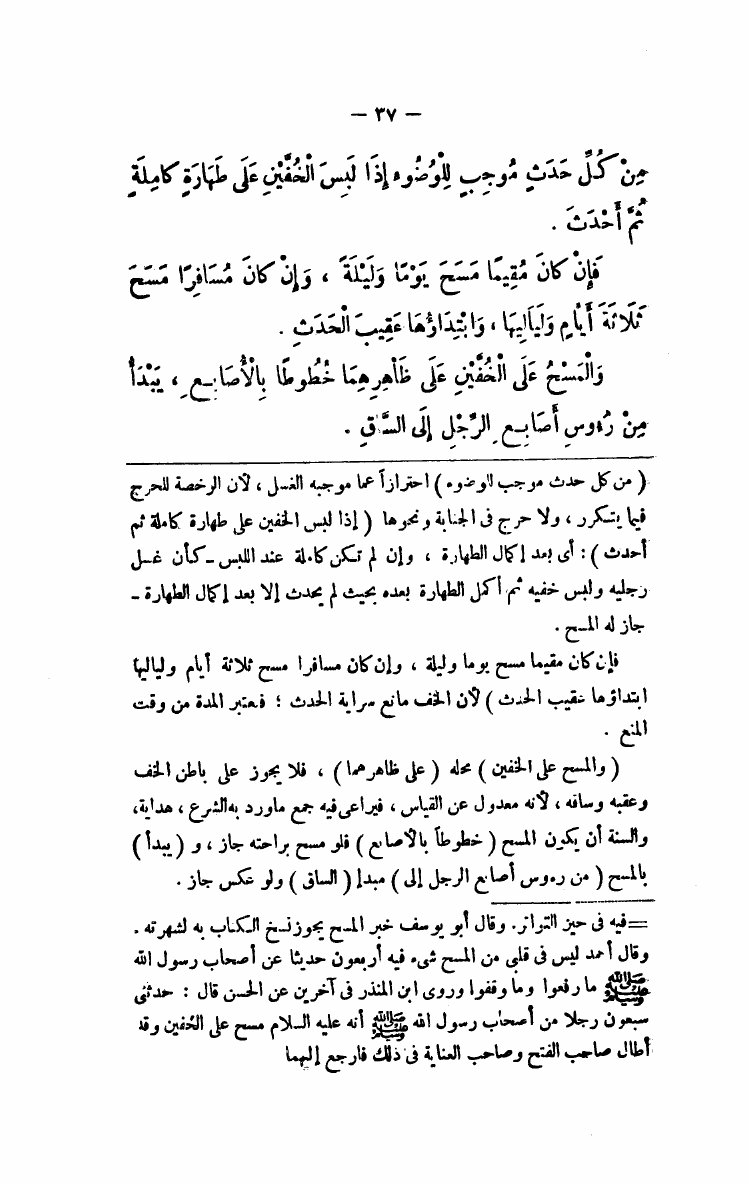 — ٣٧ —
مِنْ كُلِّ حَدَثٍ مُوجِبٍ لِلْوُضُوءِ إِذَا لَبِسَ الْخُفَّيْنِ عَلَى طَهَارَةٍ كَامِلَةٍ
ثُمَّ أَحْدَثَ .
فَإِنْ كَانَ مُقِيمًا مَسَحَ يَوْمًا وَلَيْلَةً ، وَإِنْ كَانَ مُسَافِرًا مَسَحَ
ثَلَاثَةَ أَيَّامٍ وَلَيَالِيهَا ، وَابْتِدَاؤُهَا عَقِيبَ الْحَدَثِ .
وَالْمَسْحُ عَلَى الْخُفَّيْنِ عَلَى ظَاهِرِهِمَا خُطُوطًا بِالْأَصَابِعِ ، يَبْدَأُ
مِنْ رُءُوسِ أَصَابِعِ الرِّجْلِ إِلَى السَّاقِ .
( من كل حدث موجب للوضوء ) احترازاً عما موجبه الغسل ، لأن الرخصة للحرج
فيما يتكرر ، ولا حرج فى الجنابة ونحوها ( إذا لبس الخفين على طهارة كاملة ثم
أحدث ) : أى بعد إكمال الطهارة ، وإن لم تكن كاملة عند اللبس ــ كأن غسل
رجليه ولبس خفيه ثم أكمل الطهارة بعده بحيث لم يحدث إلا بعد إكمال الطهارة ــ
جاز له المسح .
فإن كان مقيما مسح يوما وليلة ، وإن كان مسافرا مسح ثلاثة أيام ولياليها
ابتداؤها عقيب الحدث ) لأن الخف مانع سراية الحدث ؛ فتعتبر المدة من وقت
المنع .
( والمسح على الخفين ) محله ( على ظاهرهما ) ، فلا يجوز على باطن الخف
وعقبه وساقه ، لأنه معدول عن القياس ، فيراعى فيه جمع ماورد به الشرع ، هداية،
والسنة أن يكون المسح ( خطوطاً بالأصابع ) فلو مسح براحته جاز ، و ( يبدأ )
بالمسح ( من رءوس أصابع الرجل إلى ) مبدإ ( الساق ) ولو عكس جاز .
=فيه فى حيز التواتر. وقال أبو يوسف خبر المسح يجوز نسخ الكتاب به لشهرته .
وقال أحمد ليس فى قلبى من المسح شىء فيه أربعون حديثا عن أصحاب رسول الله
ﷺ ما رفعوا وما وقفوا وروى ابن المنذر فى آخرين عن الحسن قال : حدثنى
سبعون رجلا من أصحاب رسول الله ﷺ أنه عليه السلام مسح على الخفين وقد
أطال صاحب الفتح وصاحب العناية فى ذلك فارجع إليهما